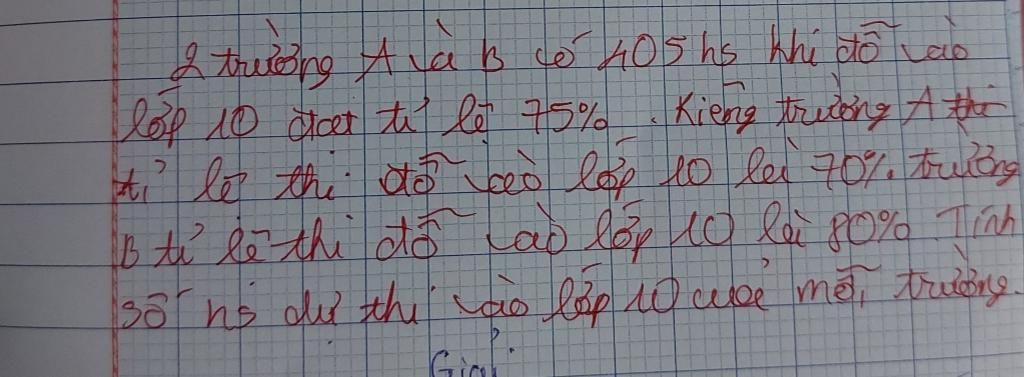 2 trường A và B có 405 hs thi đỗ vào
lớp 10 đạt tỉ lệ 75%. Riêng trường A thi
tỉ lệ thi đỗ vào lớp 10 là 70%. trường
B tỉ lệ thi đỗ vào lớp 10 là 80% Tính
số hs dự thi vào lớp 10 của mỗi trường.
Giải: